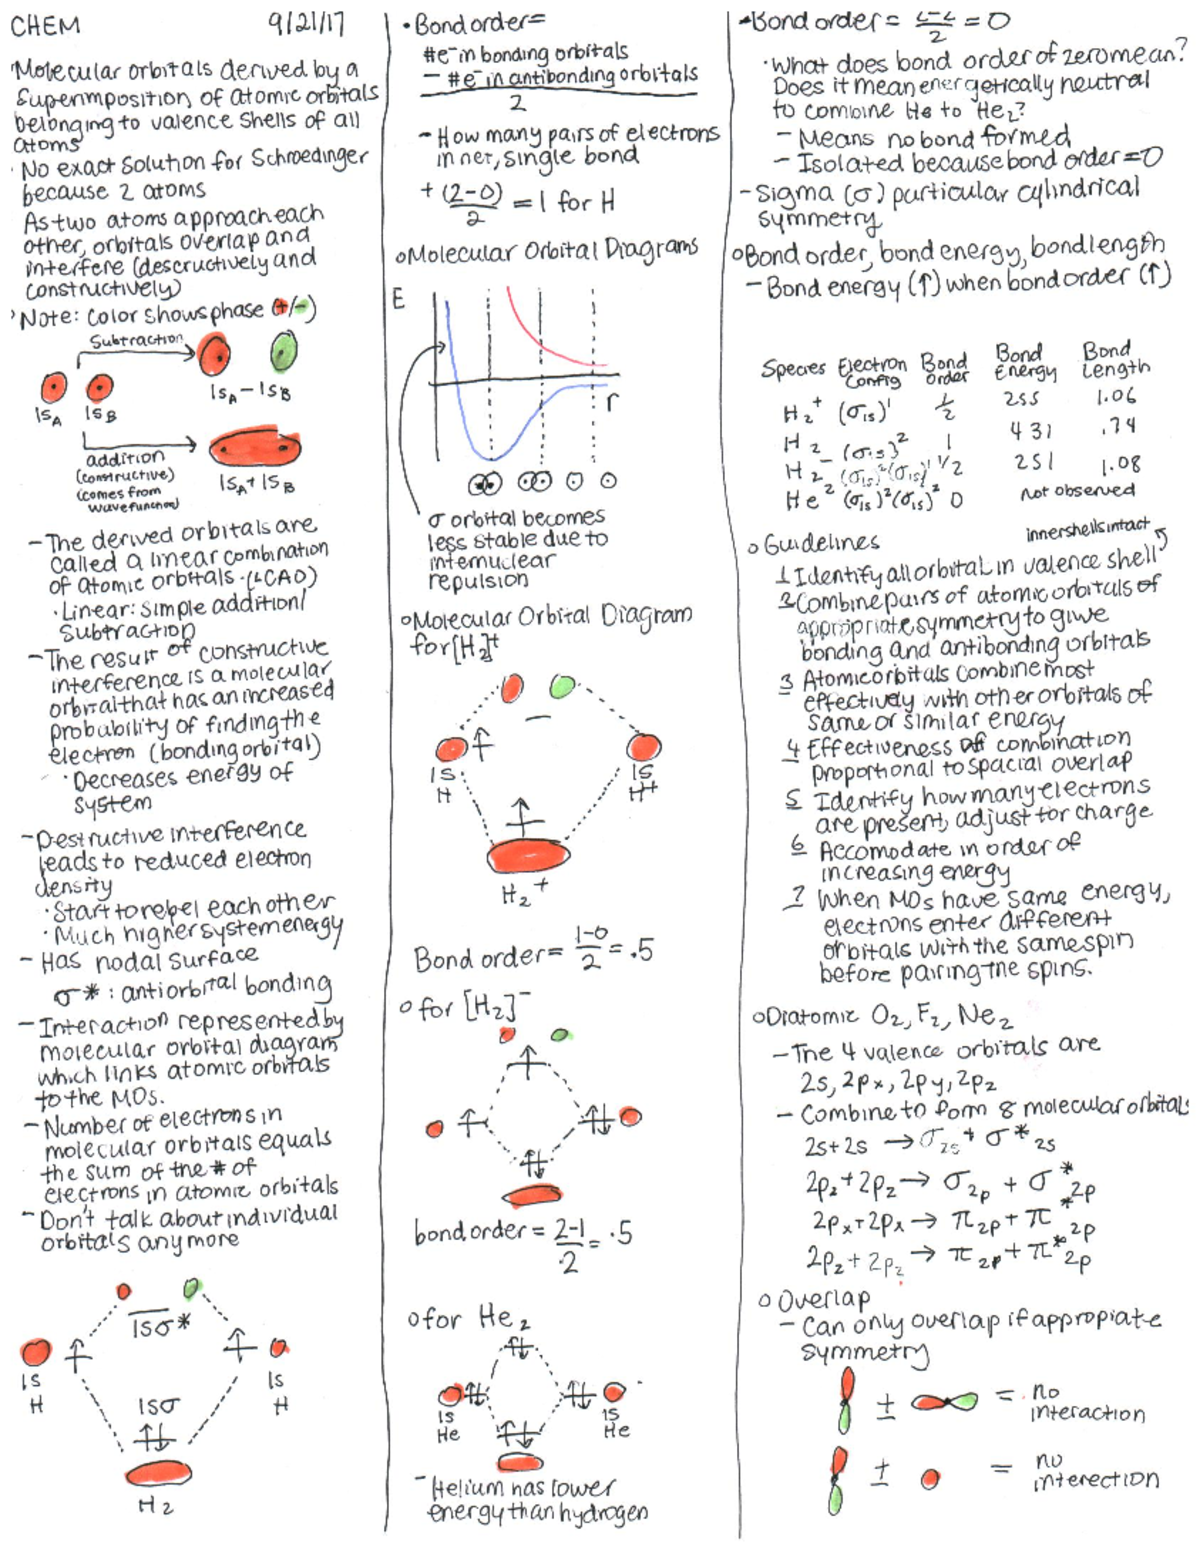 CHEM 9/21/17
·Molecular orbitals derived by a
superimposition of atomic orbitals
belonging to valence shells of all
atoms
· No exact solution for Schroedinger
because 2 atoms
As two atoms approach each
other, orbitals overlap and
interfere (descructively and
constructively)
·Note: color shows phase (+/-)
Subtraction
1s_A 1s_B
1s_A - 1s_B
addition
(constructive)
(comes from
wavefunction)
1s_A + 1s_B
- The derived orbitals are
called a linear combination
of atomic orbitals · (LCAO)
· Linear: simple addition/
subtraction
- The result of constructive
interference is a molecular
orbital that has an increased
probability of finding the
electron (bonding orbital)
· Decreases energy of
system
- Destructive interference
leads to reduced electron
density
· Start to repel each other
· Much higher system energy
- Has nodal surface
σ* : antiorbital bonding
- Interaction represented by
molecular orbital diagram
which links atomic orbitals
to the MOs.
- Number of electrons in
molecular orbitals equals
the sum of the # of
electrons in atomic orbitals
- Don't talk about individual
orbitals anymore
1sσ*
1s
H
1s
H
1sσ
H₂
• Bond order =
#e⁻ in bonding orbitals
- #e⁻ in antibonding orbitals
2
- How many pairs of electrons
in net, single bond
+ (2-0)/2 = 1 for H
○ Molecular Orbital Diagrams
E
r
σ orbital becomes
less stable due to
internuclear
repulsion
○ Molecular Orbital Diagram
for [H₂]⁺
1s
H
1s
H⁺
H₂⁺
Bond order = 1-0/2 = .5
○ for [H₂]⁻
bond order = 2-1/2 = .5
○ for He₂
1s
He
1s
He
- Helium has lower
energy than hydrogen
- Bond order = 2-2/2 = 0
· What does bond order of zero mean?
Does it mean energetically neutral
to combine He to He₂?
- Means no bond formed
- Isolated because bond order = 0
- Sigma (σ) particular cylindrical
symmetry
○ Bond order, bond energy, bond length
- Bond energy (↑) when bond order (↑)
Species Electron Config Bond order Bond Energy Bond Length
H₂⁺ (σ₁s)¹ ½ 255 1.06
H₂ (σ₁s)² 1 431 .74
H₂⁻ (σ₁s)²(σ₁s)¹ 1/2 251 1.08
He² (σ₁s)²(σ₁s)² 0 not observed
○ Guidelines inner shells intact
1 Identify all orbital in valence shell
2 Combine pairs of atomic orbitals of
appropriate symmetry to give
bonding and antibonding orbitals
3 Atomic orbitals combine most
effectively with other orbitals of
same or similar energy
4 Effectiveness of combination
proportional to spacial overlap
5 Identify how many electrons
are present, adjust for charge
6 Accomodate in order of
increasing energy
7 When MOs have same energy,
electrons enter different
orbitals with the same spin
before pairing the spins.
○ Diatomic O₂, F₂, Ne₂
- The 4 valence orbitals are
2s, 2px, 2py, 2pz
- Combine to form 8 molecular orbitals
2s + 2s → σ₂s + σ*₂s
2pz + 2pz → σ₂p + σ*₂p
2px + 2px → π₂p + π*₂p
2pz + 2pz → π₂p + π*₂p
○ Overlap
- Can only overlap if appropiate
symmetry
± = no
interaction
± = no
interection